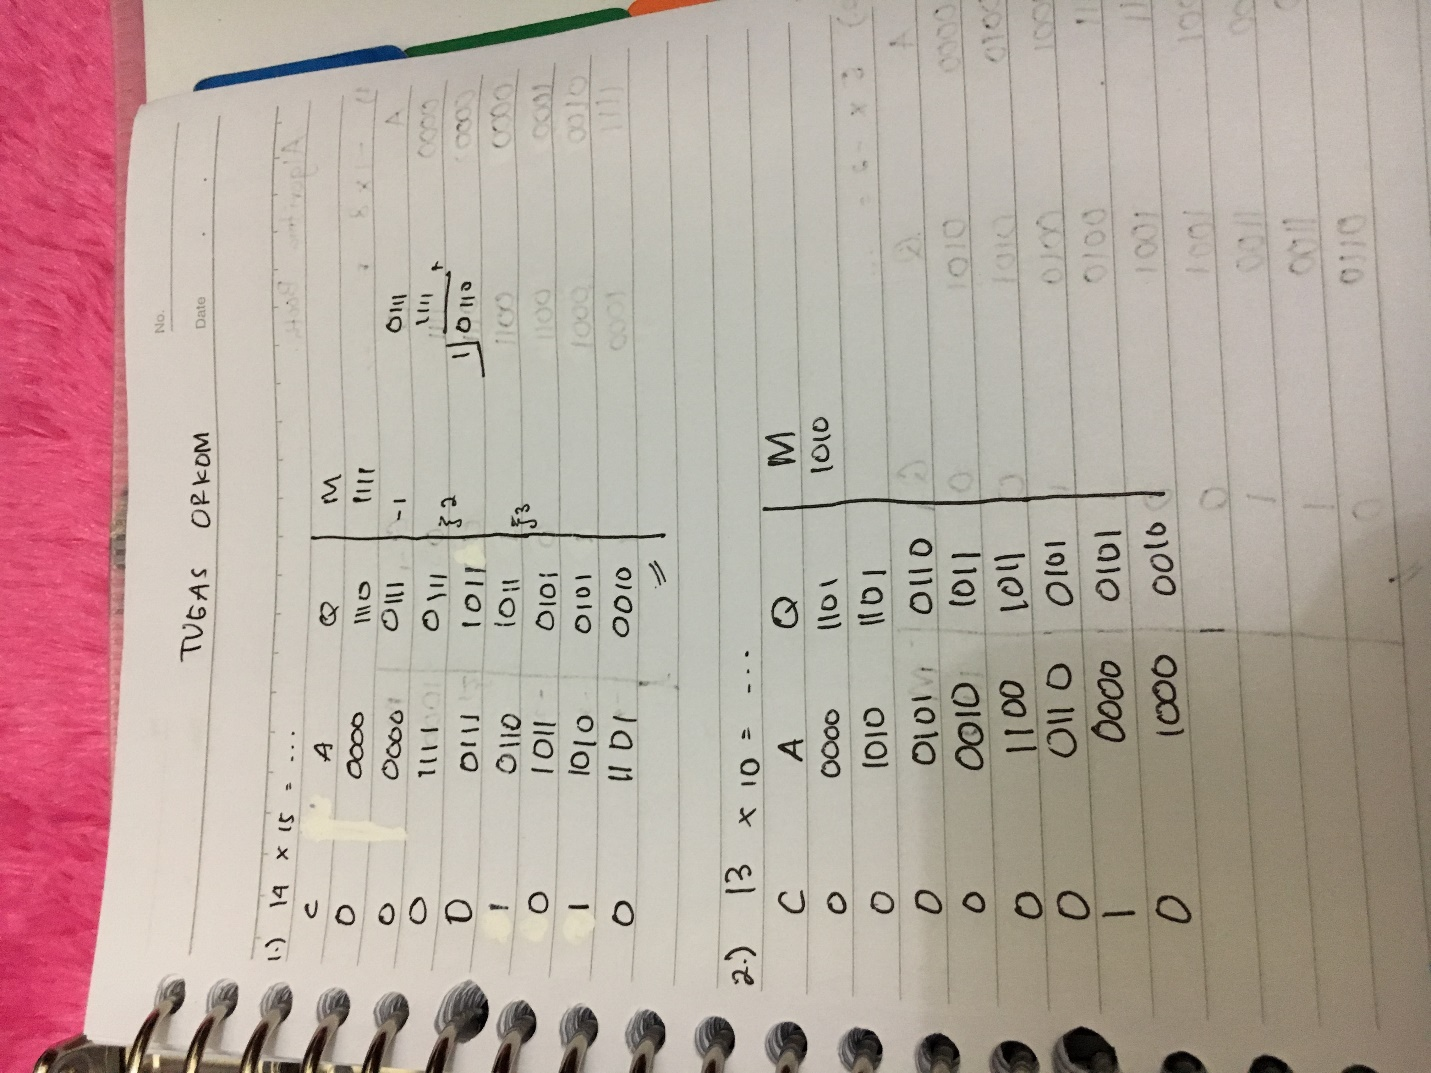 No.
Date
TUGAS ORKOM
1.) 14 x 15 = ...
C A Q M
0 0000 1110 1111
0 0000 0111 -1
0 1111 0111
0 0111 1011 } 2
1 0110 1011
0 1011 0101 } 3
1 1010 0101
0 1101 0010
0111
1111 +
1 0110
2.) 13 x 10 = ...
C A Q M
0 0000 1101 1010
0 1010 1101
0 0101 0110
0 0010 1011
0 1100 1011
0 0110 0101
1 0000 0101
0 1000 0010